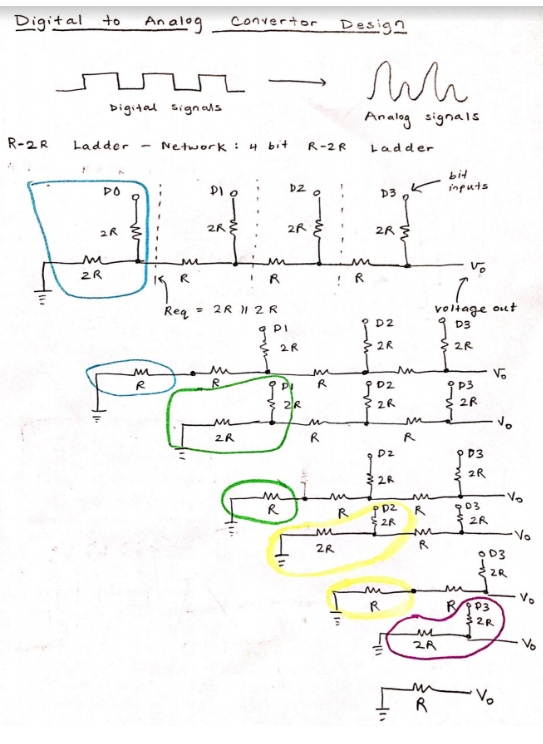 Digital to Analog Convertor Design
Digital signals
Analog signals
R-2R Ladder - Network : 4 bit R-2R Ladder
bit inputs
D0 D1 D2 D3
2R 2R 2R 2R
2R R R R V₀
Req = 2R || 2R
voltage out
D1 D2 D3
2R 2R 2R
R R R V₀
D1 D2 D3
2R 2R 2R
2R R R V₀
D2 D3
2R 2R
R R R V₀
D2 D3
2R 2R
2R R V₀
D3
2R
R R V₀
D3
2R
2R V₀
R V₀